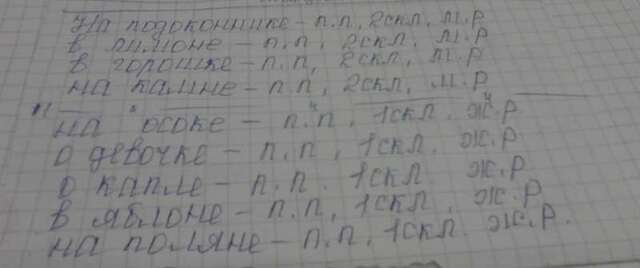 На подоконнике - п.п, 2скл, м.р
в лимоне - п.п, 2скл, м.р
в горошке - п.п, 2скл, м.р
на камне - п.п, 2скл, м.р
на осоке - п.п, 1скл. ж.р
о девочке - п.п, 1скл. ж.р
о капле - п.п. 1скл. ж.р
в яблоне - п.п, 1скл, ж.р
на поляне - п.п, 1скл. ж.р.